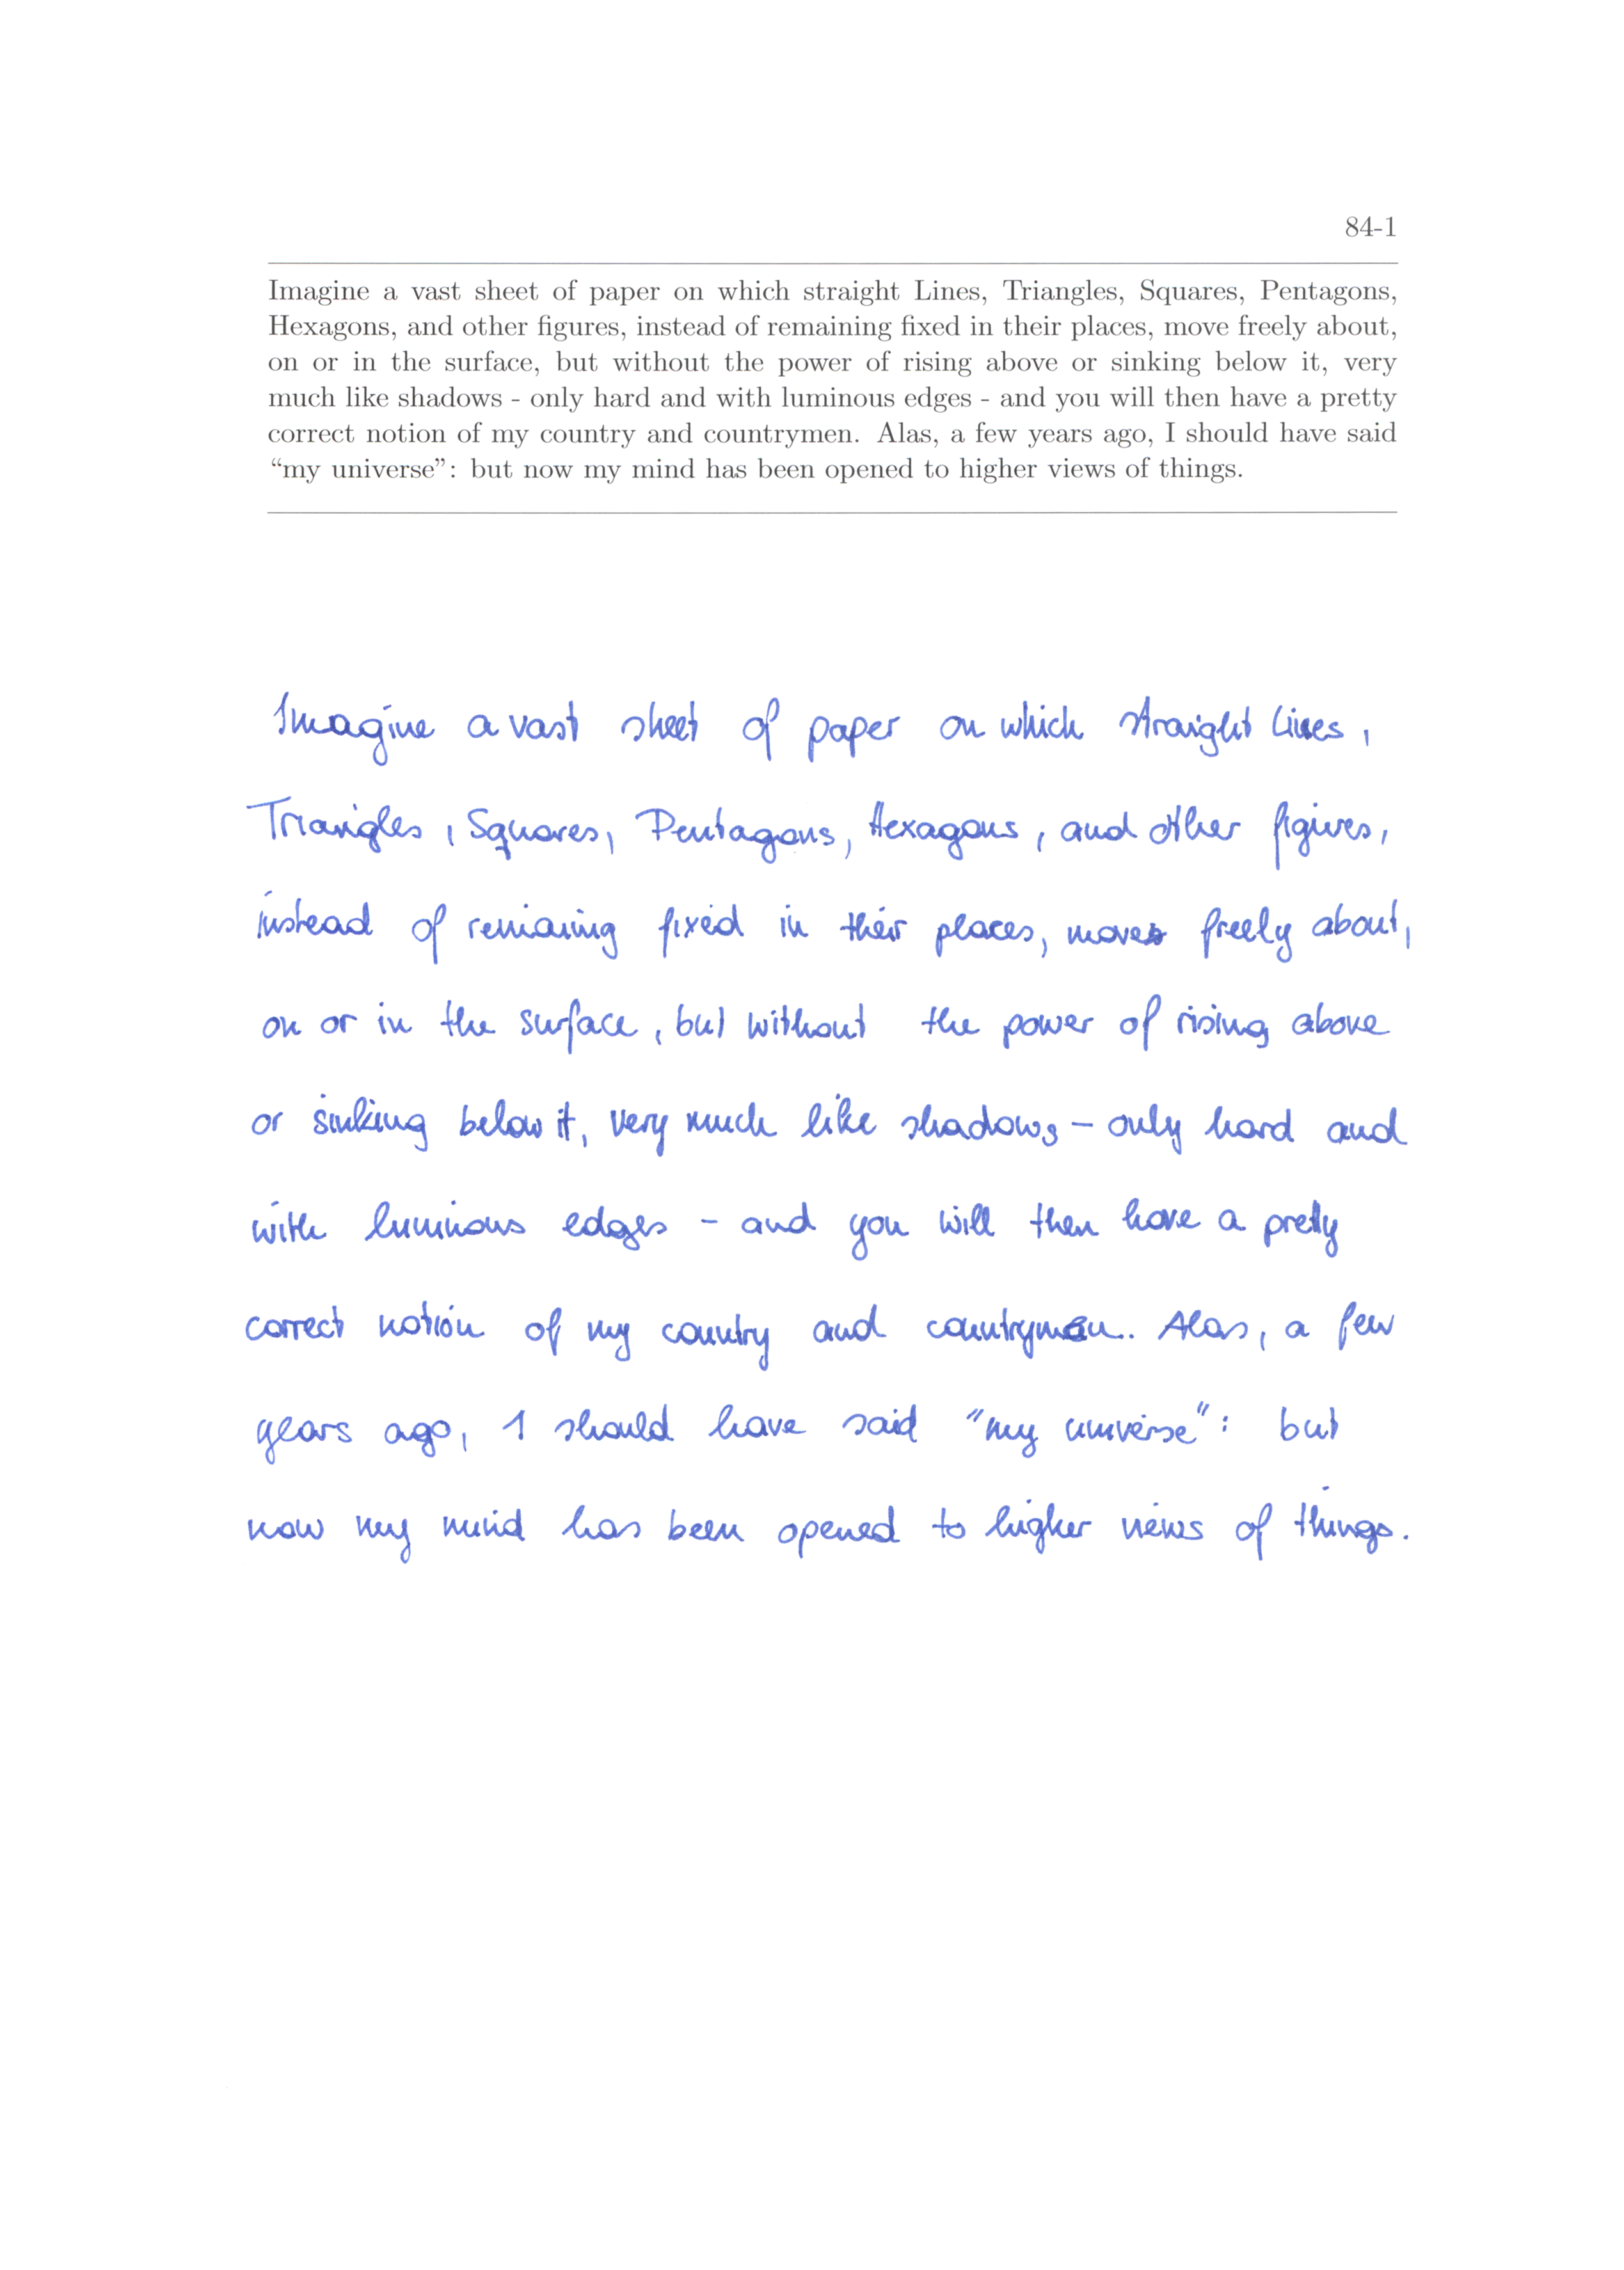 84-1
Imagine a vast sheet of paper on which straight Lines, Triangles, Squares, Pentagons,
Hexagons, and other figures, instead of remaining fixed in their places, move freely about,
on or in the surface, but without the power of rising above or sinking below it, very
much like shadows - only hard and with luminous edges - and you will then have a pretty
correct notion of my country and countrymen. Alas, a few years ago, I should have said
“my universe”: but now my mind has been opened to higher views of things.
Imagine a vast sheet of paper on which straight Lines,
Triangles, Squares, Pentagons, Hexagons, and other figures,
instead of remaining fixed in their places, moves freely about,
on or in the surface, but without the power of rising above
or sinking below it, very much like shadows - only hard and
with luminous edges - and you will then have a pretty
correct notion of my country and countrymen. Alas, a few
years ago, I should have said "my universe": but
now my mind has been opened to higher views of things.